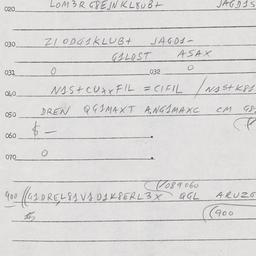 020 LOM3R G8EJNKL8UB+ JAGD1S
030 ZIODG1KLUB+ JAGD1-
G1LDST ASAX
031 0 032 0
040 N1S+CUXXFIL = CIFIL / N1S+K81
050 DREN QG1MAXT A,NG1MAXC CM G8
060 $ -
070 0
089060
900 G1DREL81V1D1K8ERL3X QGL ARUZE
900